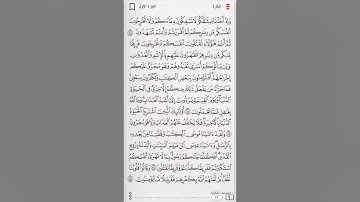 البقرة الجزء الأول
وَإِذْ أَخَذْنَا مِيثَٰقَكُمْ لَا تَسْفِكُونَ دِمَآءَكُمْ وَلَا تُخْرِجُونَ
أَنفُسَكُم مِّن دِيَٰرِكُمْ ثُمَّ أَقْرَرْتُمْ وَأَنتُمْ تَشْهَدُونَ ٨٤
ثُمَّ أَنتُمْ هَٰٓؤُلَآءِ تَقْتُلُونَ أَنفُسَكُمْ وَتُخْرِجُونَ فَرِيقًا
مِّنكُم مِّن دِيَٰرِهِمْ تَظَٰهَرُونَ عَلَيْهِم بِٱلْإِثْمِ وَٱلْعُدْوَٰنِ
وَإِن يَأْتُوكُمْ أُسَٰرَىٰ تُفَٰدُوهُمْ وَهُوَ مُحَرَّمٌ عَلَيْكُمْ
إِخْرَاجُهُمْ ۚ أَفَتُؤْمِنُونَ بِبَعْضِ ٱلْكِتَٰبِ وَتَكْفُرُونَ بِبَعْضٍ ۚ
فَمَا جَزَآءُ مَن يَفْعَلُ ذَٰلِكَ مِنكُمْ إِلَّا خِزْىٌ فِى ٱلْحَيَوٰةِ
ٱلدُّنْيَا ۖ وَيَوْمَ ٱلْقِيَٰمَةِ يُرَدُّونَ إِلَىٰٓ أَشَدِّ ٱلْعَذَابِ ۗ وَمَا ٱللَّهُ
بِغَٰفِلٍ عَمَّا تَعْمَلُونَ ٨٥ أُو۟لَٰٓئِكَ ٱلَّذِينَ ٱشْتَرَوُا۟ ٱلْحَيَوٰةَ
ٱلدُّنْيَا بِٱلْءَاخِرَةِ ۖ فَلَا يُخَفَّفُ عَنْهُمُ ٱلْعَذَابُ وَلَا هُمْ يُنصَرُونَ
٨٦ وَلَقَدْ ءَاتَيْنَا مُوسَى ٱلْكِتَٰبَ وَقَفَّيْنَا مِنۢ بَعْدِهِۦ
بِٱلرُّسُلِ ۖ وَءَاتَيْنَا عِيسَى ٱبْنَ مَرْيَمَ ٱلْبَيِّنَٰتِ وَأَيَّدْنَٰهُ بِرُوحِ
ٱلْقُدُسِ ۗ أَفَكُلَّمَا جَآءَكُمْ رَسُولٌۢ بِمَا لَا تَهْوَىٰٓ أَنفُسُكُمُ
ٱسْتَكْبَرْتُمْ فَفَرِيقًا كَذَّبْتُمْ وَفَرِيقًا تَقْتُلُونَ ٨٧ وَقَالُوا۟ قُلُوبُنَا
غُلْفٌۢ ۚ بَل لَّعَنَهُمُ ٱللَّهُ بِكُفْرِهِمْ فَقَلِيلًا مَّا يُؤْمِنُونَ ٨٨
١٣